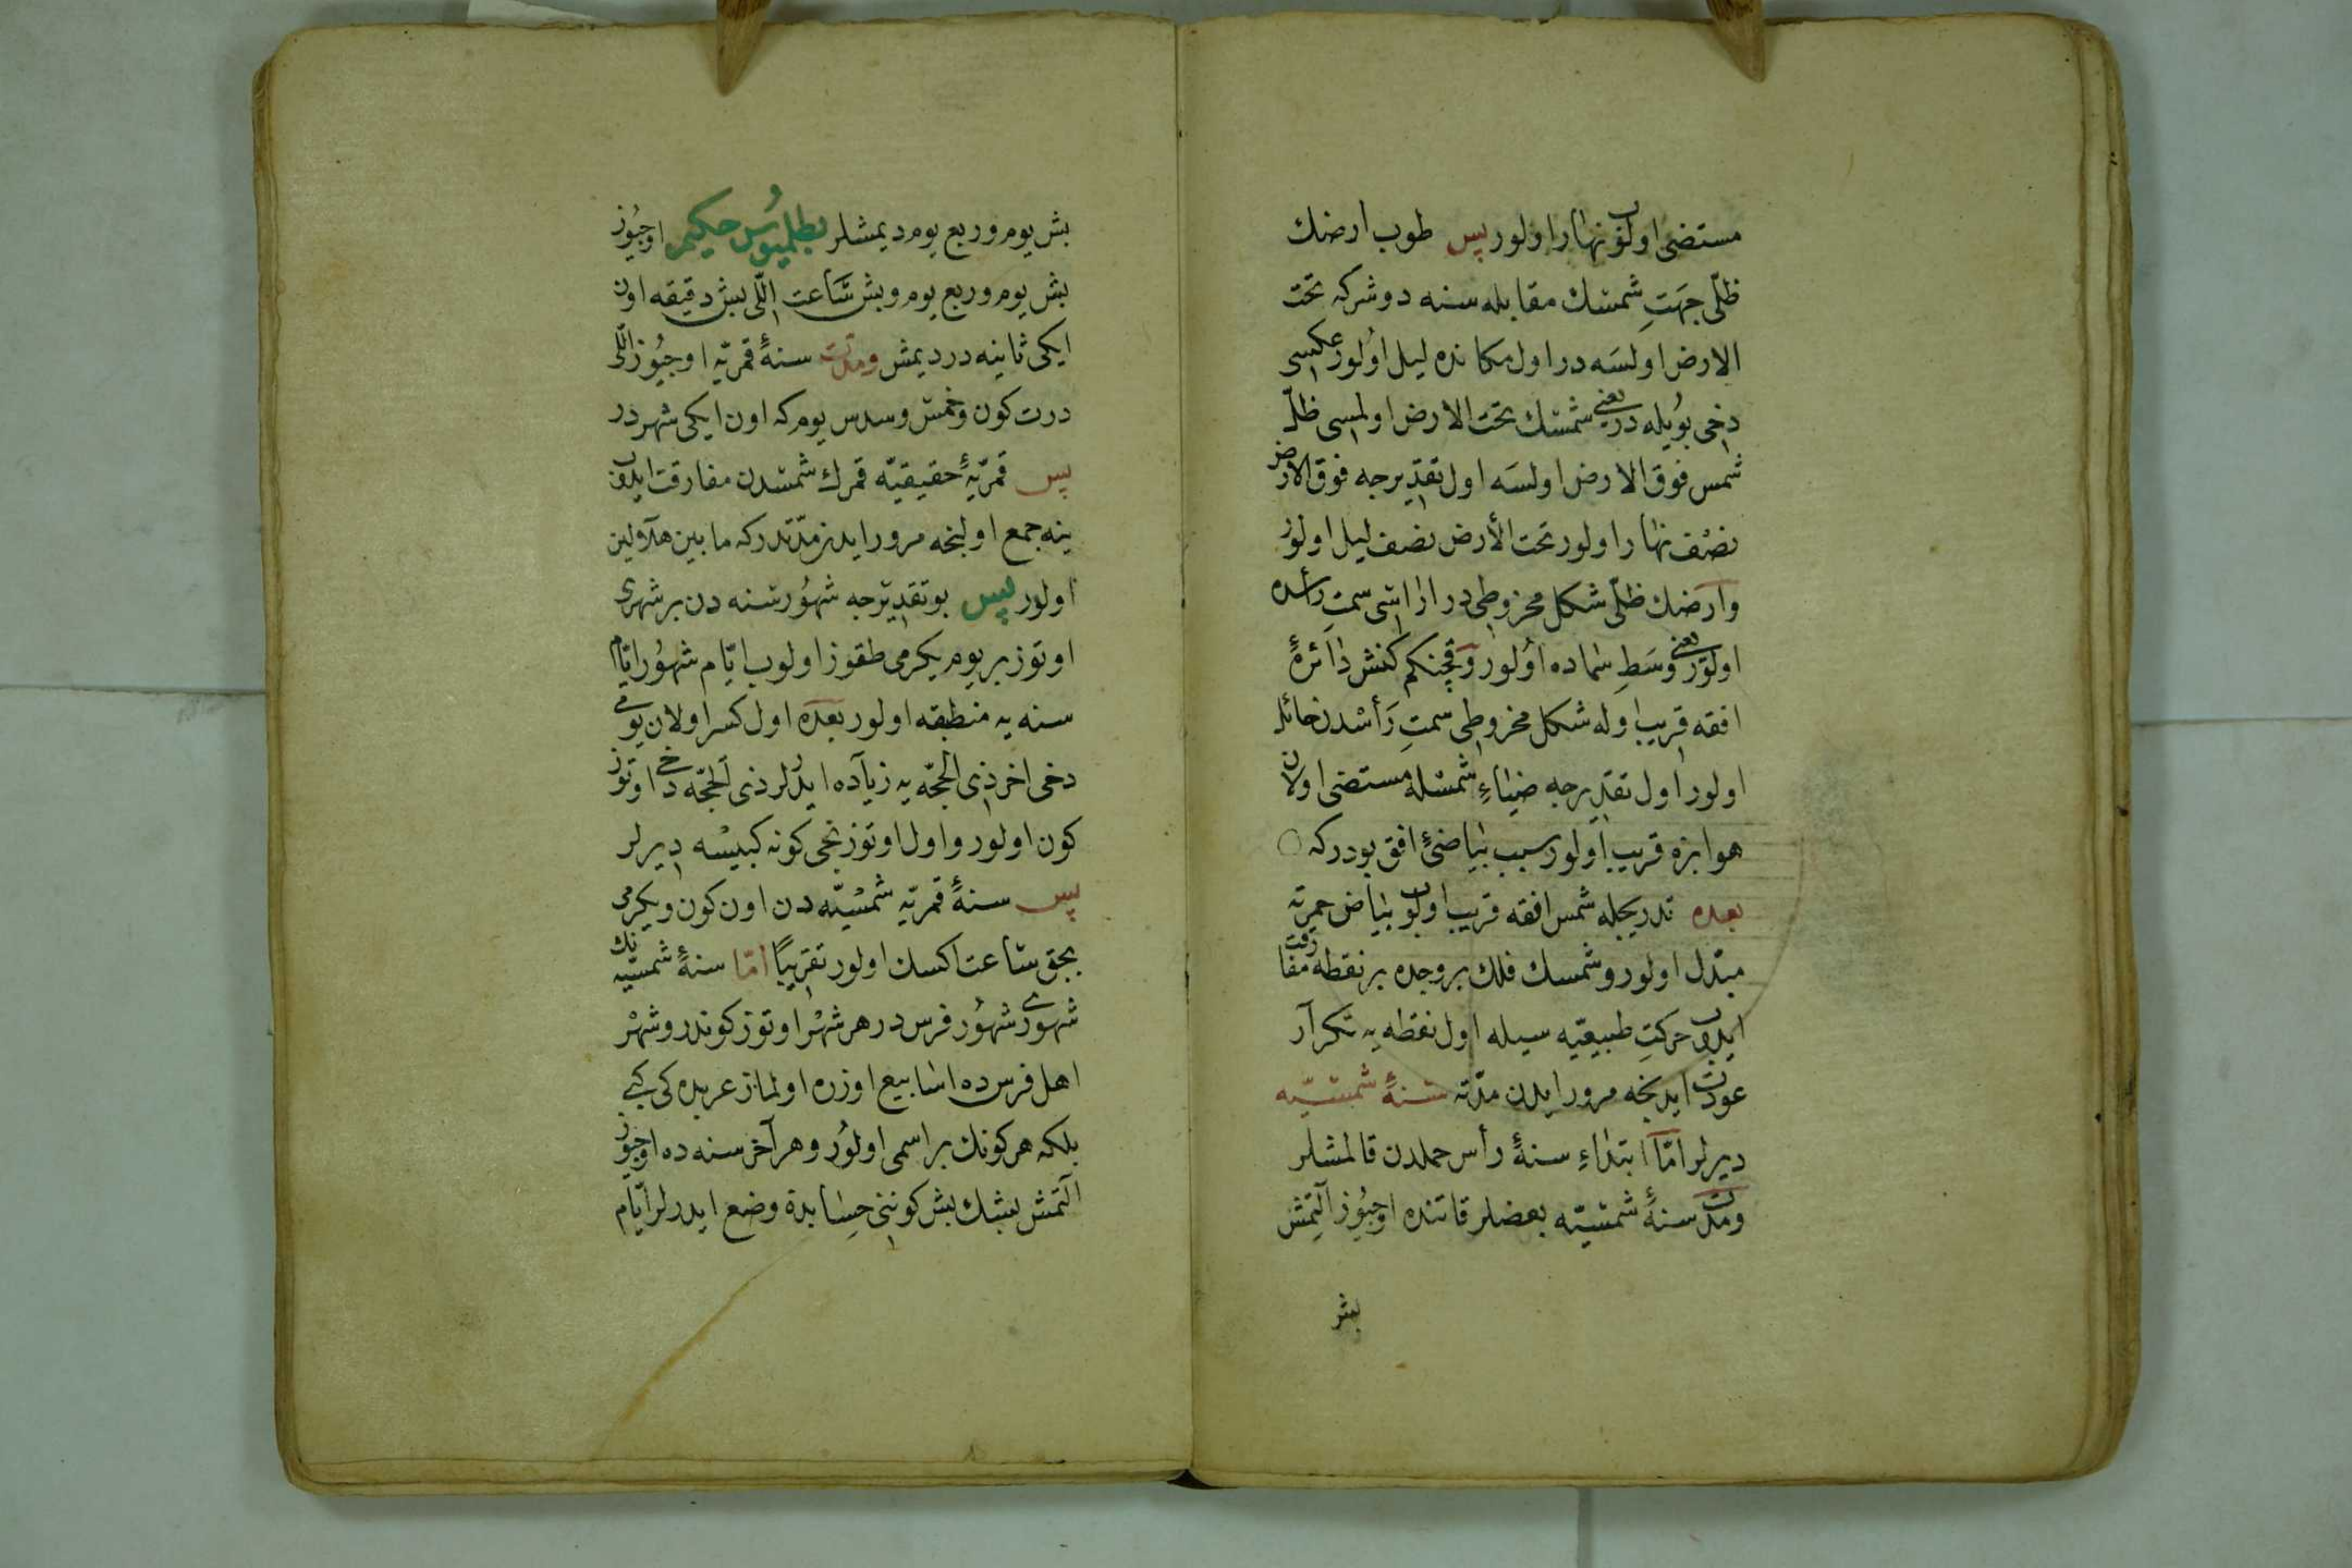 مستضئ اولوب نهار اولور پس طوب ارضك
ظلّی جهتِ شمسك مقابله سنه دوشركه تحت
الارض اولسه در اول مكانده لیل اولور عكسی
دخی بویله در یعنی شمسك تحت الارض اولمسی ظلّ
شمس فوق الارض اولسه اول تقدیرجه فوق الارض
نصف نهار اولور تحت الأرض نصف لیل اولور
وارضك ظلّی شكل مخروطیدر اراسی سمت رأسده
اولور یعنی وسطِ سماده اولور وقچنكم كنش دائرهٔ
افقه قریب اوله شكل مخروطی سمتِ رأسدن مائل
اولور اول تقدیرجه ضیاءِ شمسله مستضئ اولان
هوا بزه قریب اولور سبب بیاضئ افق بودركه
بعده تدریجله شمس افقه قریب اولوب بیاض حمرته
مبدّل اولور وشمسك فلك بروجده بر نقطه مفارقت
ایدوب حركتِ طبیعیّه سیله اول نقطه یه تكرار
عودت ایدنجه مرور ایدن مدّته سنهٔ شمسیّه
دیرلر امّا ابتداءِ سنهٔ رأس حملدن قالمشلر
ومدّت سنهٔ شمسیّه بعضلر قاتنده اوچیوز آلتمش
بش
بش یوم وربع یوم دیمشلر بطلمیوس حكیم اوچیوز
بش یوم وربع یوم وبش ساعت اللّی بش دقیقه اون
ایكی ثانیه در دیمش ومدّت سنهٔ قمریّه اوچیوز اللّی
درت كون وخمس وسدس یوم كه اون ایكی شهردر
پس قمریّهٔ حقیقیّه قمرك شمسدن مفارقت ایدوب
ینه جمع اولنجه مرور ایدن مدّتدركه مابین هلالین
اولور پس بو تقدیرجه شهور سنه دن بر شهری
اوتوز بر یوم یكرمی طقوز اولوب ایّام شهور ایّام
سنه یه منطبقه اولور بعده اول كسر اولان یومی
دخی اخر ذی الحجّه یه زیاده ایدرلر ذی الحجّه دخی اوتوز
كون اولور واول اوتوزنجی كونه كبیسه دیرلر
پس سنهٔ قمریّه شمسیّه دن اون كون ویكرمی
بجق ساعت اكسك اولور تقریبًا امّا سنهٔ شمسیّه نك
شهوری شهور فرس در هر شهر اوتوز كوندر وشهر
اهل فرسده اسابیع اوزره اولماز عربده كی كبی
بلكه هر كونك بر اسمی اولور وهر آخر سنه ده اوچیوز
آلتمش بشك بش كوننی حسابده وضع ایدرلر ایّام